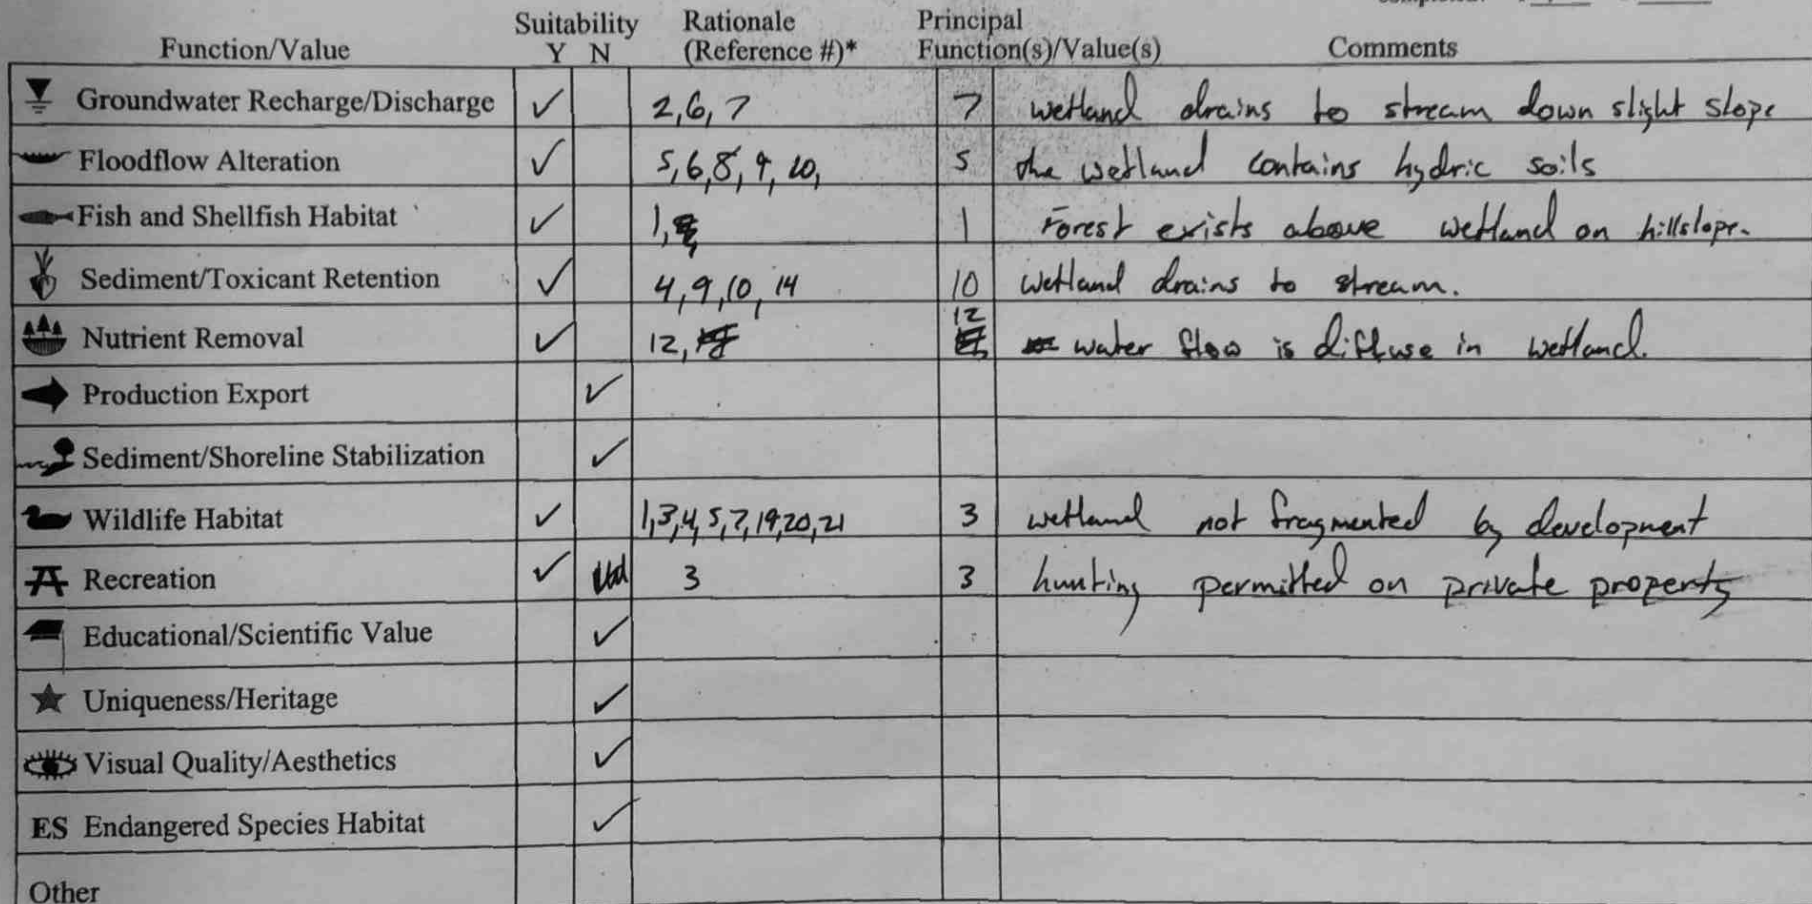 Suitability Rationale Principal
Function/Value Y N (Reference #)* Function(s)/Value(s) Comments
Groundwater Recharge/Discharge ✓ 2,6,7 7 wetland drains to stream down slight slope
Floodflow Alteration ✓ 5,6,8,9,10, 5 the wetland contains hydric soils
Fish and Shellfish Habitat ✓ 1, 1 Forest exists above wetland on hillslope.
Sediment/Toxicant Retention ✓ 4,9,10,14 10 wetland drains to stream.
Nutrient Removal ✓ 12, 12 water flow is diffuse in wetland.
Production Export ✓
Sediment/Shoreline Stabilization ✓
Wildlife Habitat ✓ 1,3,4,5,7,19,20,21 3 wetland not fragmented by development
Recreation ✓ 3 3 hunting permitted on private property
Educational/Scientific Value ✓
Uniqueness/Heritage ✓
Visual Quality/Aesthetics ✓
ES Endangered Species Habitat ✓
Other